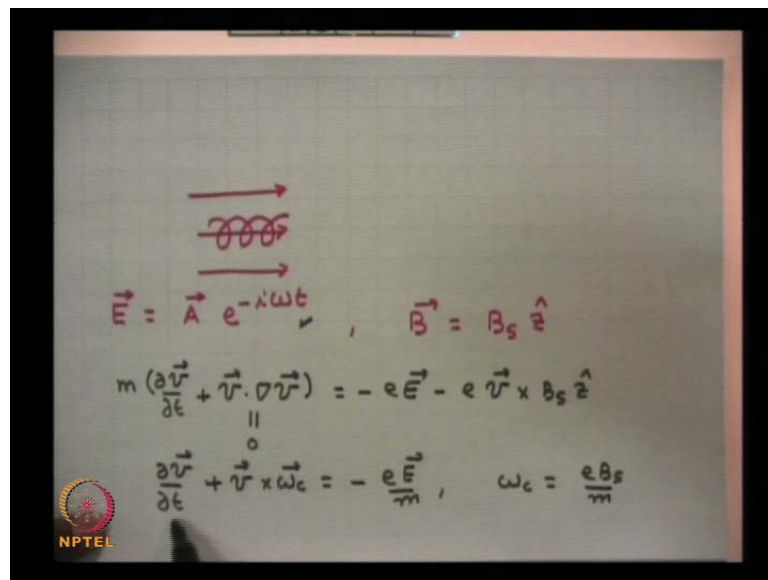 E⃗ = A⃗ e^{-iωt}, B⃗ = B_s ẑ
m (∂v⃗/∂t + v⃗ · ∇v⃗) = - e E⃗ - e v⃗ × B_s ẑ
||
0
∂v⃗/∂t + v⃗ × ω⃗_c = - eE⃗/m, ω_c = eB_s/m
NPTEL